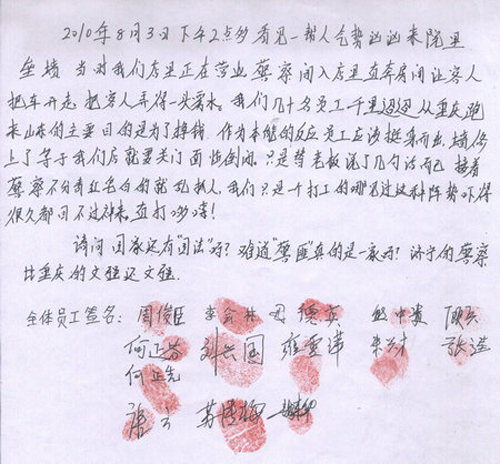 2010年8月3日下午2点多看见一帮人气势汹汹来院里
垒墙 当时我们店里正在营业 警察闯入店里直奔房间让客人
把车开走 把客人弄得一头雾水。我们几十名员工千里迢迢从重庆跑
来山东的主要目的是为了挣钱 作为本能的反应员工应该挺身而出,墙
上了等于我们店就要关门 面临倒闭,只是等老板说了几句话而已 接着
警察不分青红皂白的就乱抓人,我们只是个打工的哪见过这种阵势 吓得
很久都回不过神来。直打哆嗦!
请问国家还有"国法"吗?难道"警匪"真的是一家吗?济宁的警察
比重庆的文强还文强.
全体员工签名: 周俊臣 德英 中贵
何正芬 刘兴国 雍雪萍 朱 张
何正先
张 苏